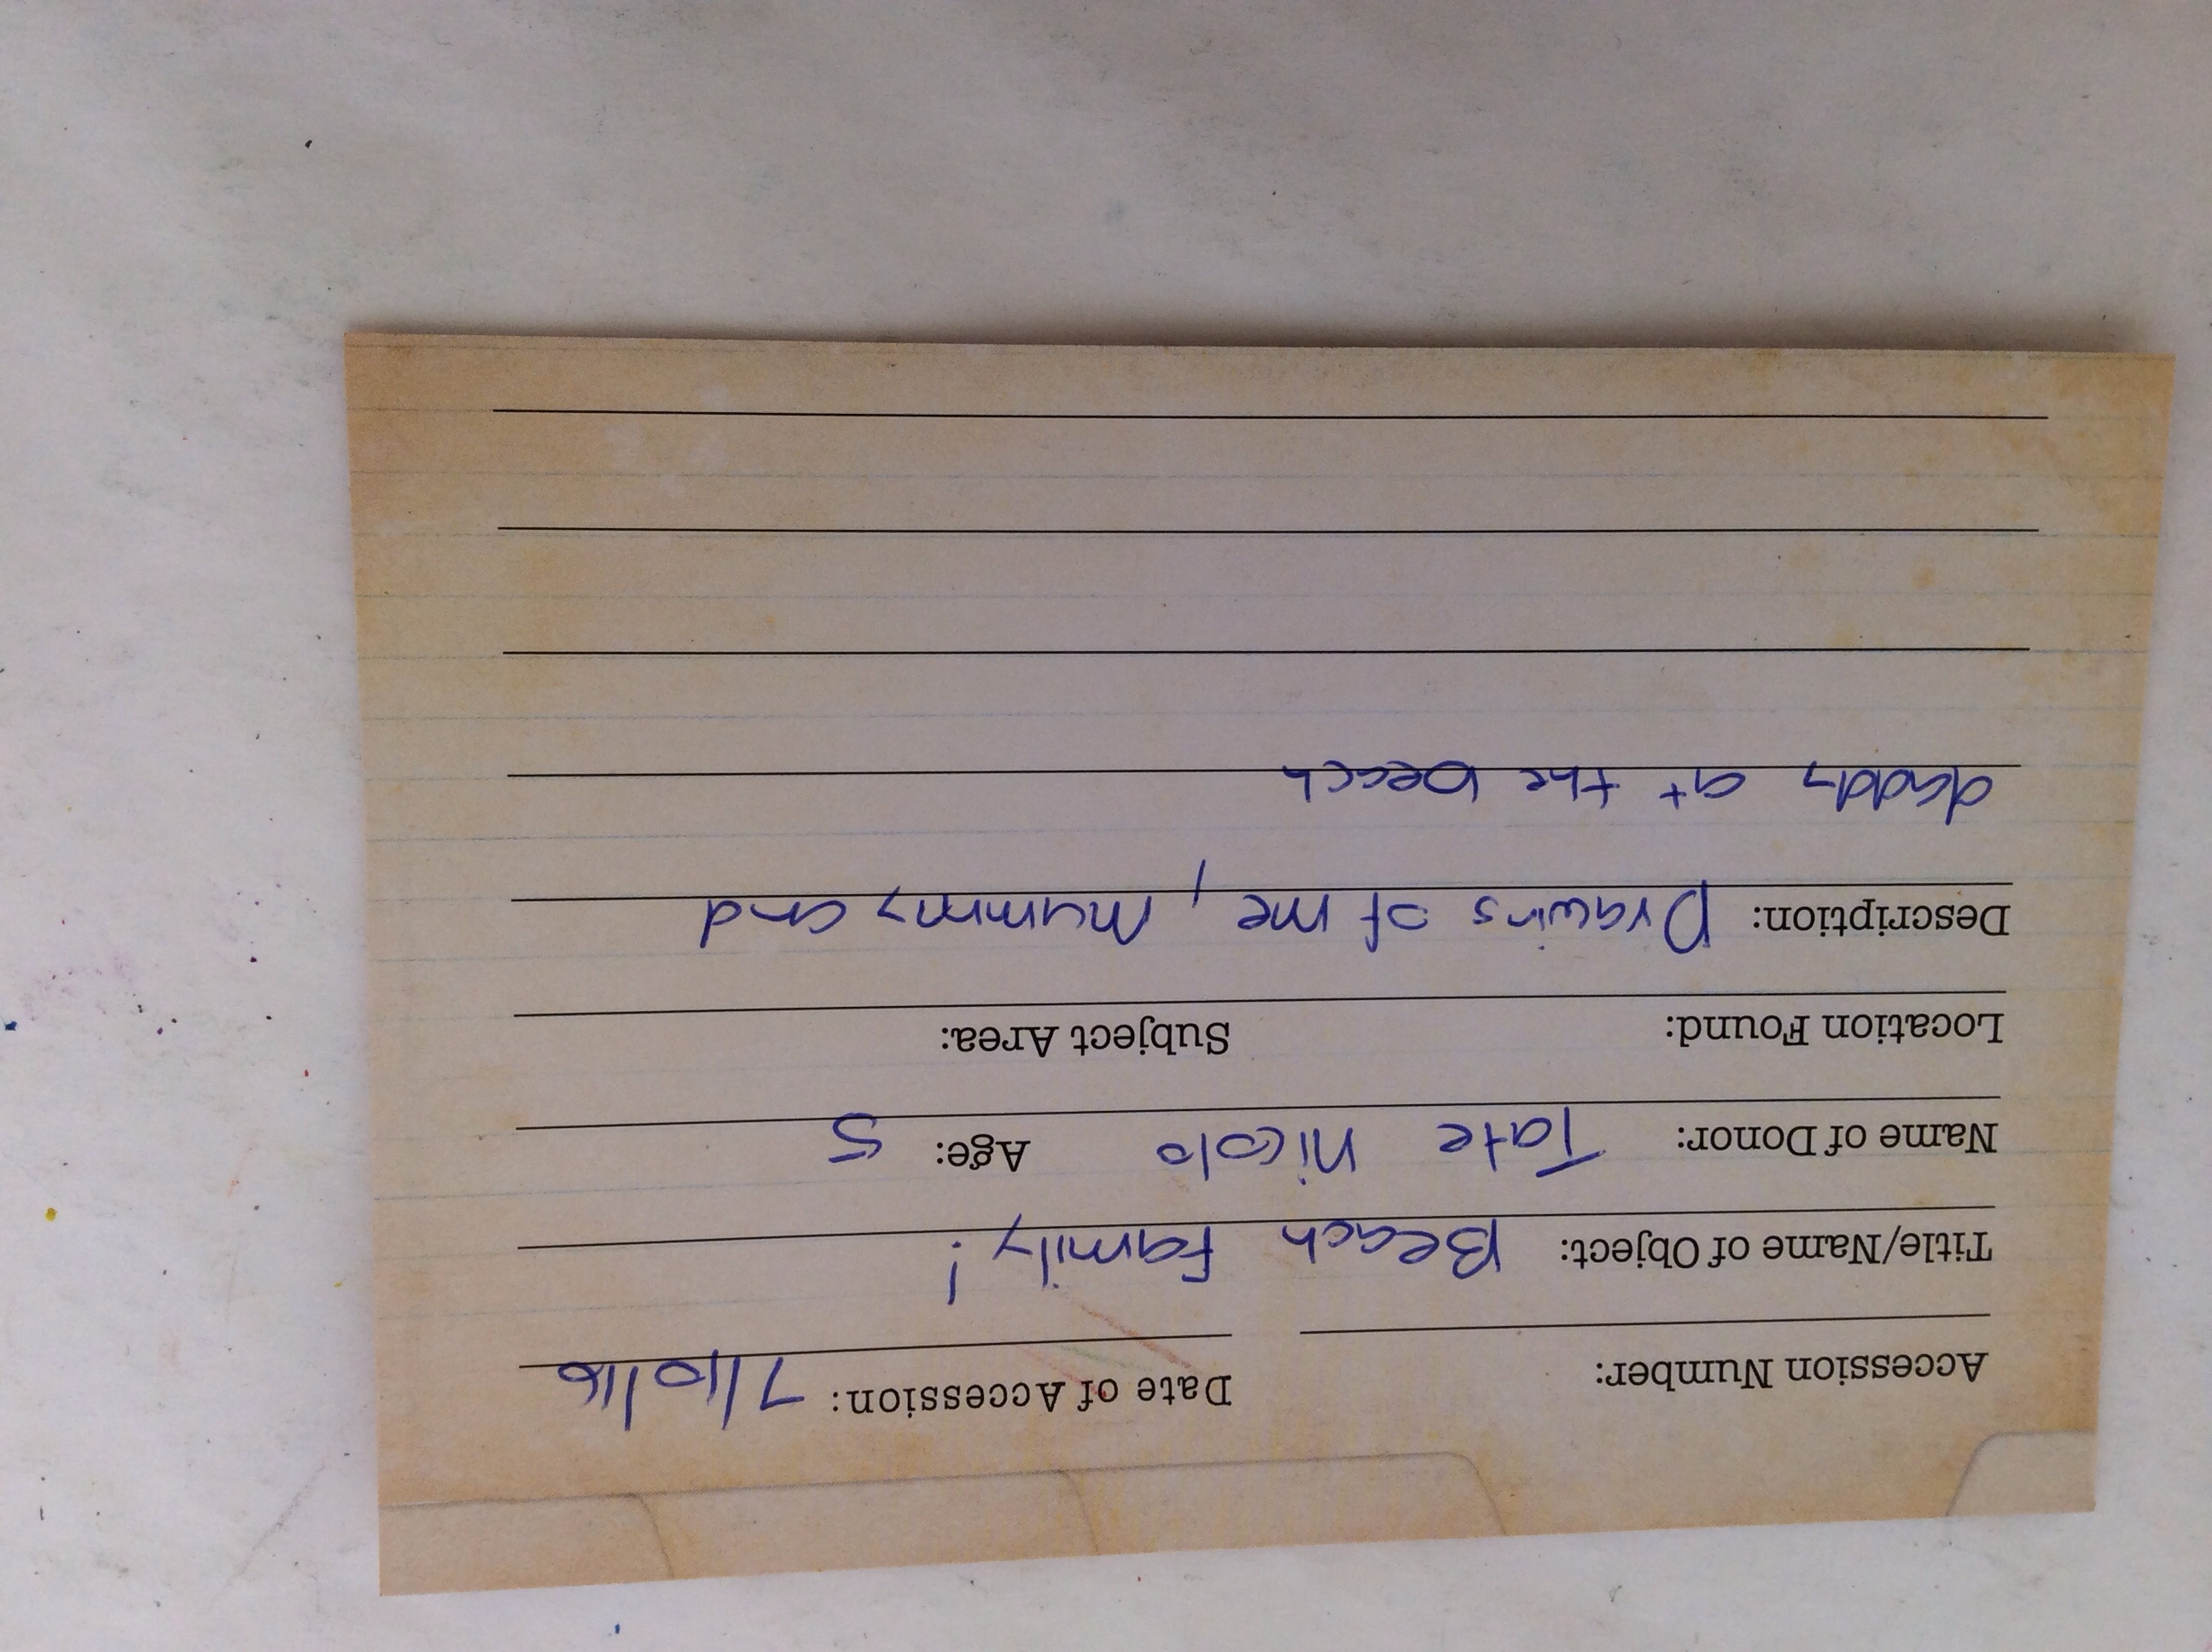 Accession Number: Date of Accession: 7/10/16
Title/Name of Object: Beach Family!
Name of Donor: Tate Nicolo Age: 5
Location Found: Subject Area:
Description: Drawing of me, Mummy and
daddy at the beach